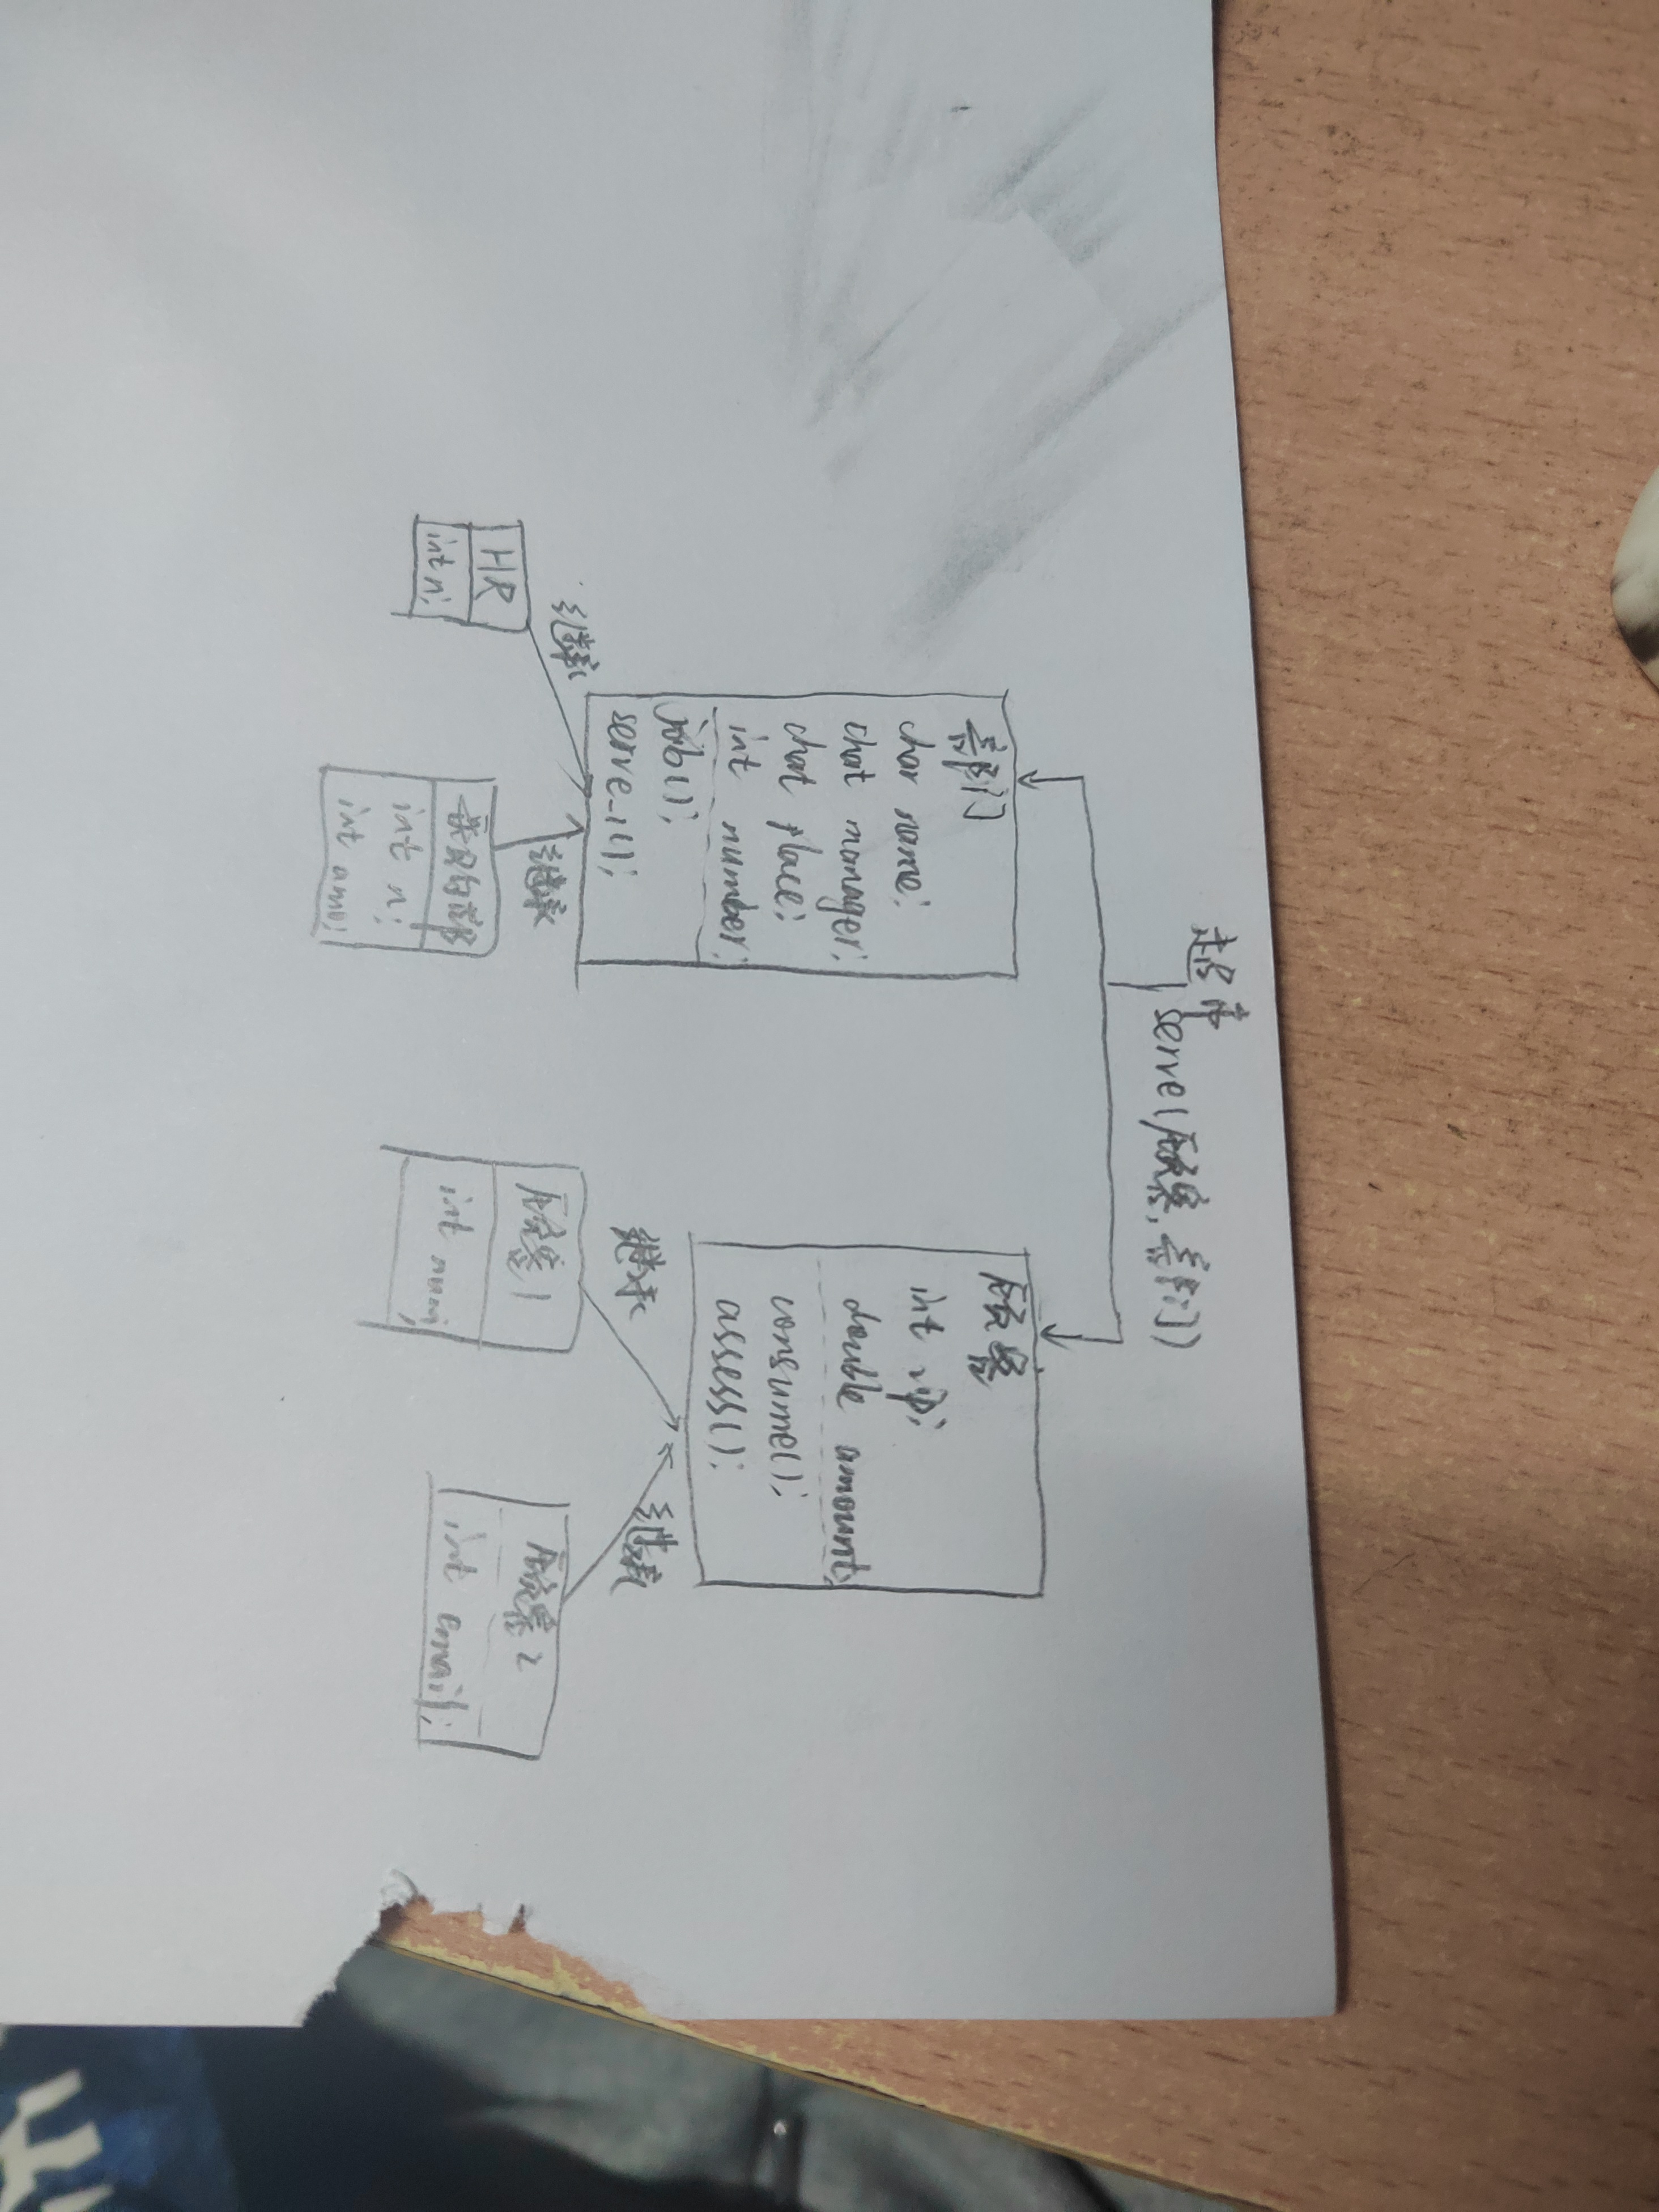 超市
serve(顾客,部门)
部门
char name;
chat manager;
chat place;
int number;
job();
serve_1();
顾客
int vip;
double amount;
consume();
assess();
继承
继承
继承
继承
HR
int n;
采购部
int n;
int amo;
顾客1
int num;
顾客2
int email;